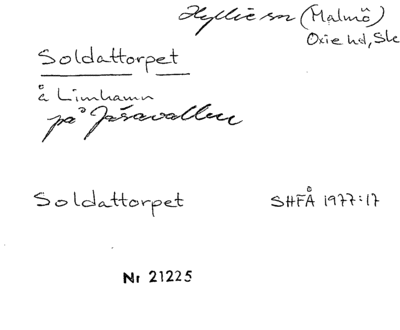 Hyllie sn (Malmö)
Oxie hd, Sk
Soldattorpet
å Limhamn
på
Soldattorpet SHFÅ 1977:17
Nr 21225